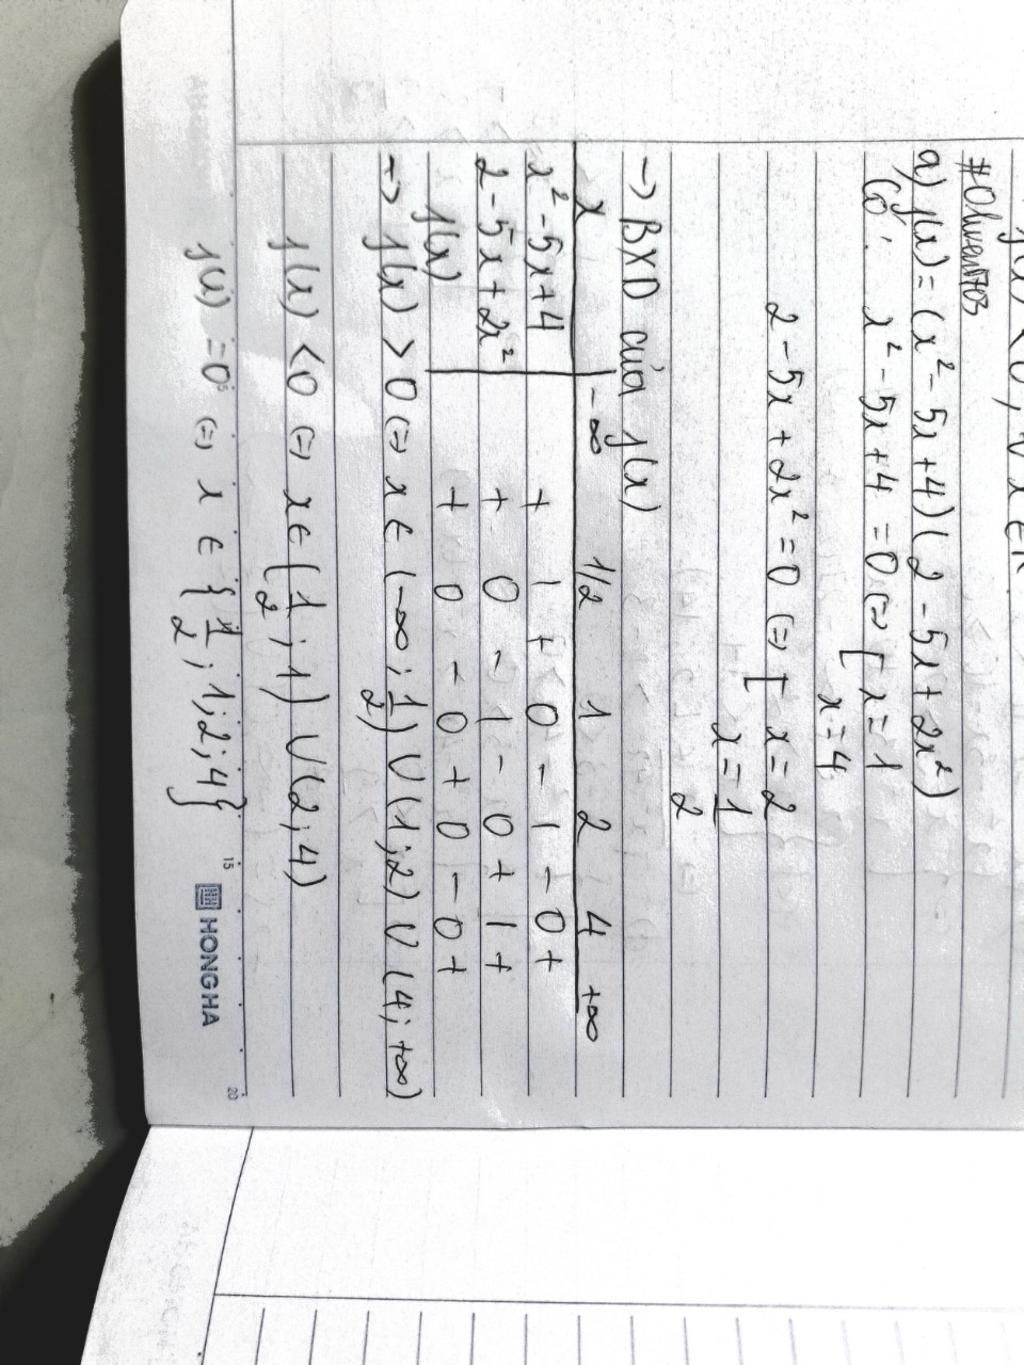 f(x) < 0, ∀ x ∈ R
#Oliver5703
a) f(x) = (x² - 5x + 4)(2 - 5x + 2x²)
Có: x² - 5x + 4 = 0 (=) [ x = 1
x = 4
2 - 5x + 2x² = 0 (=) [ x = 2
x = 1/2
-> BXD của f(x)
x | -∞ 1/2 1 2 4 +∞
x² - 5x + 4 | + | + 0 - | - 0 +
2 - 5x + 2x² | + 0 - | - 0 + | +
f(x) | + 0 - 0 + 0 - 0 +
-> f(x) > 0 (=) x ∈ (-∞; 1/2) U (1; 2) U (4; +∞)
f(x) < 0 (=) x ∈ (1/2; 1) U (2; 4)
f(x) = 0 (=) x ∈ {1/2; 1; 2; 4}
5 15 HONGHA 20